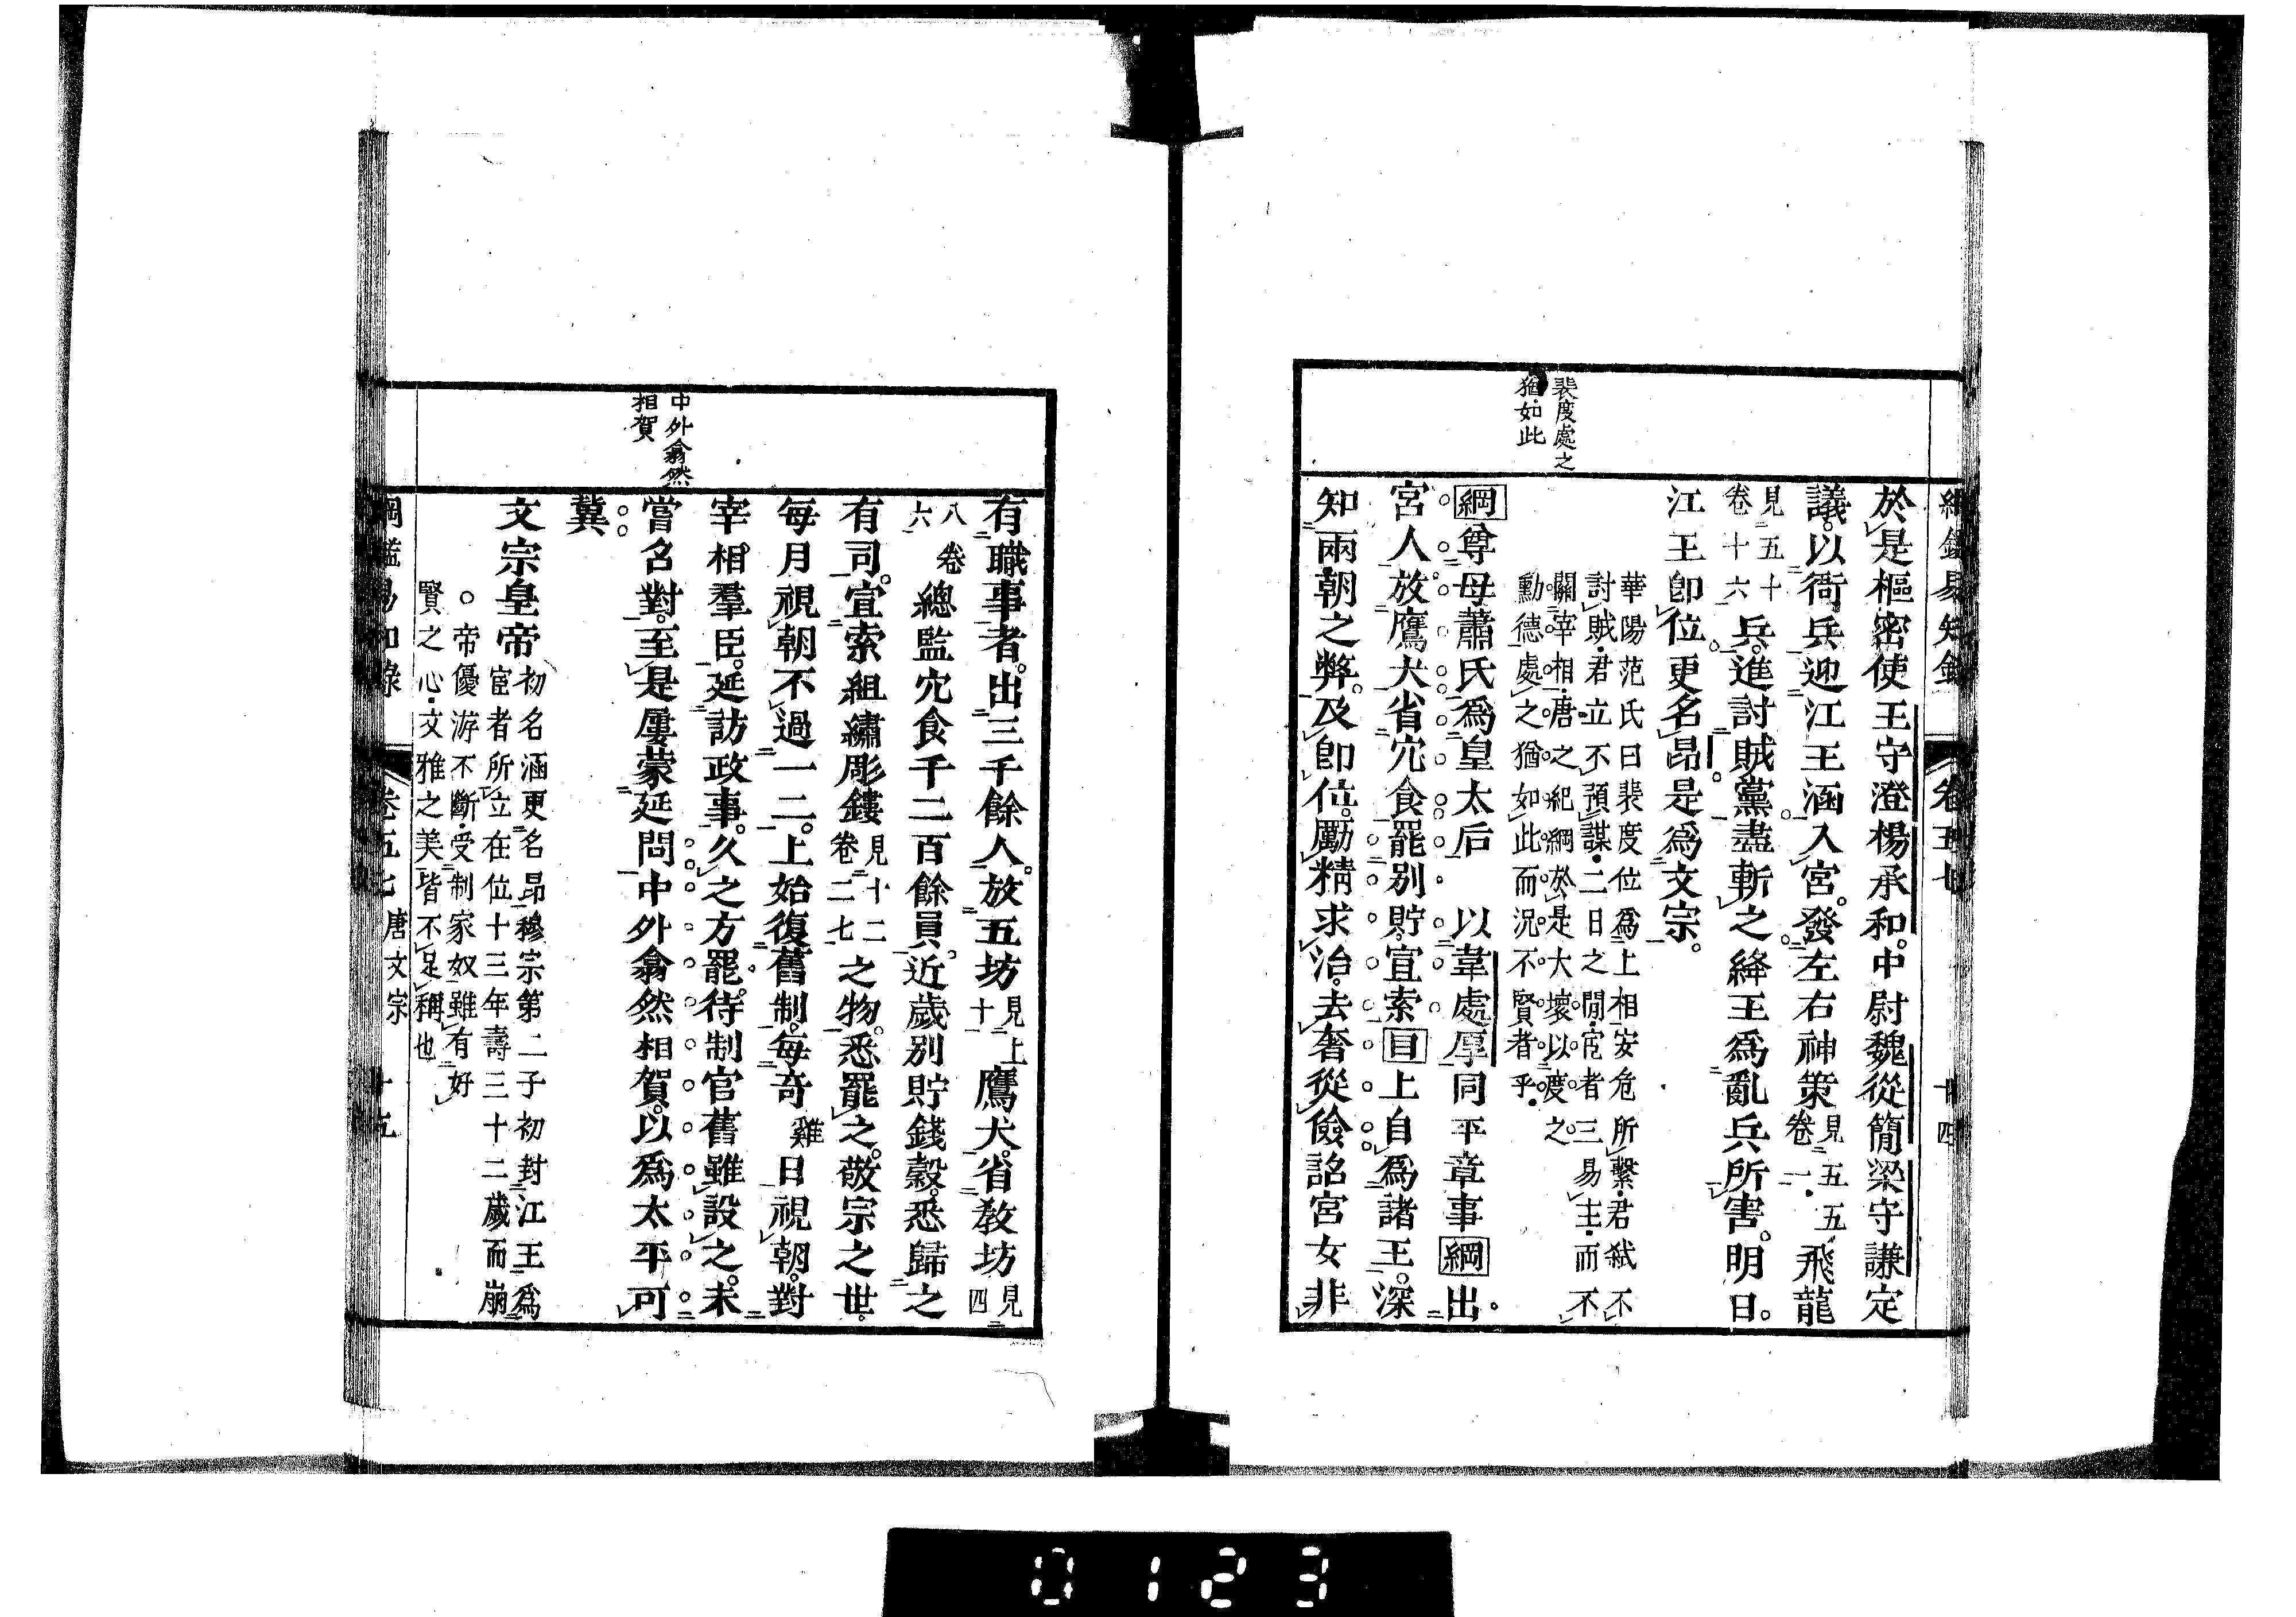 綱鑑易知錄 卷五七 十四
裴度處之
猶如此
於是樞密使王守澄楊承和中尉魏從簡梁守謙定
議。以衙兵迎江王涵入宮。發左右神策見五五卷一飛龍
見五十卷十六兵。進討賊黨盡斬之絳王爲亂兵所害。明日。
江王卽位更名昂是爲文宗。
華陽范氏曰裴度位爲上相安危所繫君弑不
討賊君立不預謀二日之閒宦者三易主而不
關宰相唐之紀綱於是大壞以度之
勳德處之猶如此而況不賢者乎
綱尊母蕭氏爲皇太后 以韋處厚同平章事綱出
宮人放鷹犬省宂食罷別貯宣索目上自爲諸王。深
知兩朝之弊。及卽位。勵精求治。去奢從儉詔宮女非
有職事者。出三千餘人。放五坊見上十鷹犬。省敎坊見四
八六卷總監宂食千二百餘員。近歲別貯錢穀。悉歸之
有司。宣索組繡彫鏤見十二卷二七之物。悉罷之。敬宗之世。
每月視朝不過一二。上始復舊制。每奇雞日視朝。對
宰相羣臣。延訪政事。久之方罷。待制官舊雖設之。未
嘗召對。至是屢蒙延問中外翕然相賀。以爲太平可
冀
中外翕然
相賀
文宗皇帝初名涵更名昂穆宗第二子初封江王爲
宦者所立在位十三年壽三十二歲而崩
○帝優游不斷受制家奴雖有好
賢之心文雅之美皆不足稱也
綱鑑易知錄 卷五七 唐文宗 十五
0123